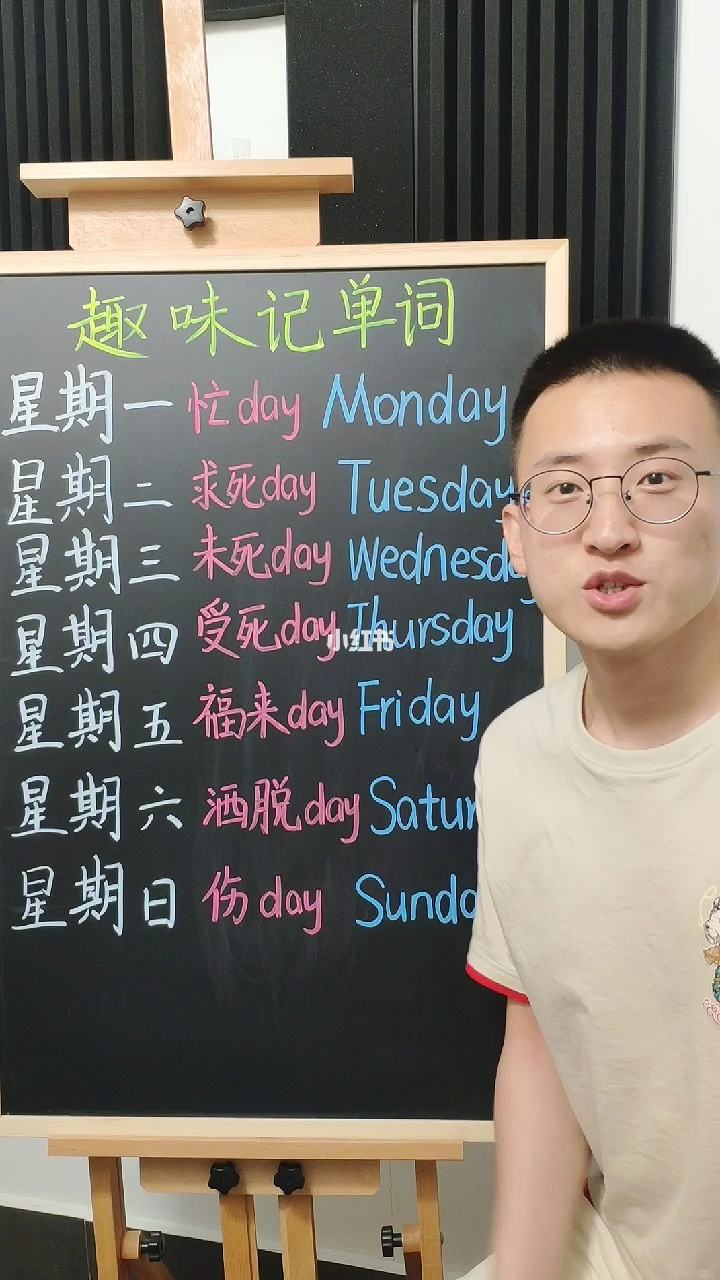 趣味记单词
星期一 忙day Monday
星期二 求死day Tuesday
星期三 未死day Wednesd
星期四 受死day Thursday
小红书
星期五 福来day Friday
星期六 洒脱day Satur
星期日 伤day Sunda